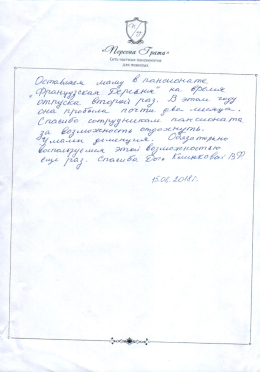 «Персона Грата»
Сеть частных пансионатов
для пожилых
Оставляем маму в пансионате
"Французская деревня" на время
отпуска второй раз. В этом году
она пробыла почти два месяца.
Спасибо сотрудникам пансионата
за возможность отдохнуть.
У мамы деменция. Обязательно
воспользуемся этой возможностью
еще раз. Спасибо Клинкова
2018г.